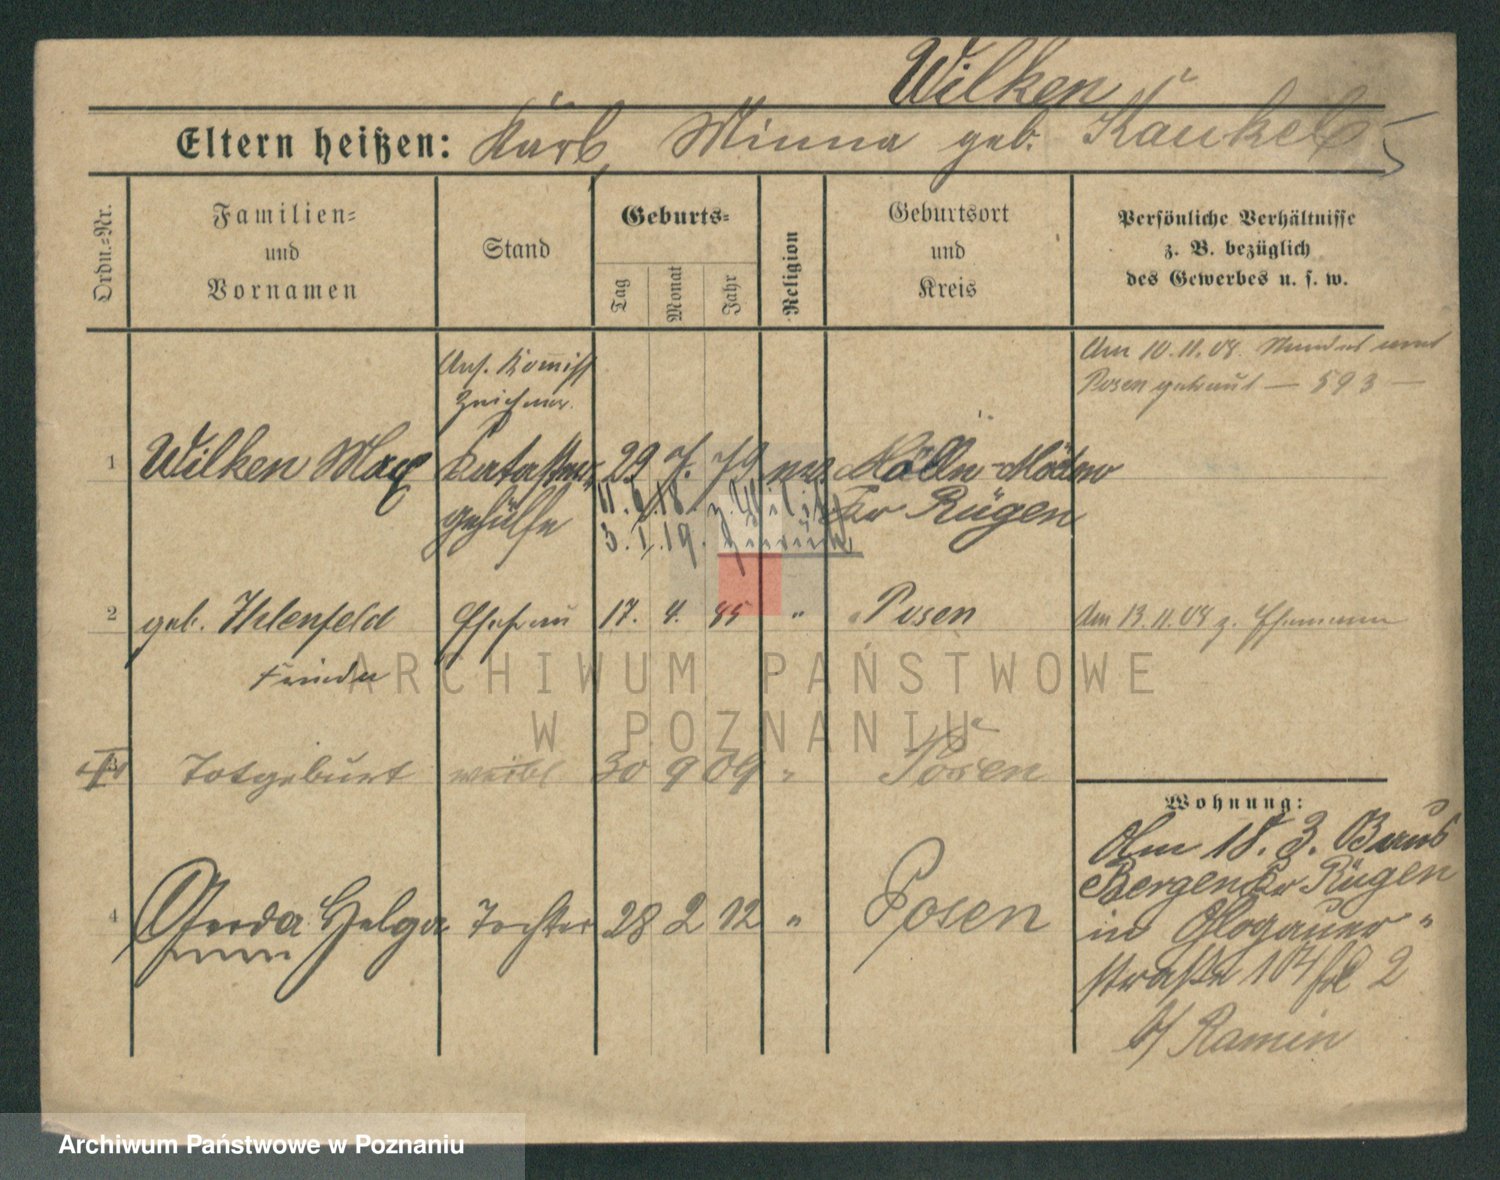 Wilken
Eltern heißen: Karl, Minna geb. Kaukel
Ordn.=Nr.
Familien=
und
Vornamen
Stand
Geburts=
Tag
Monat
Jahr
Religion
Geburtsort
und
Kreis
Persönliche Verhältnisse
z. B. bezüglich
des Gewerbes u. s. w.
Ans. Komiss
Zeichner.
Am 10.11.08
Posen getraut — 593 —
1 Wilken Max Kataster 29 7. 79 Mölln-Medow
gehülfe Kr Rügen
11.6.18. z. Milit
3.1.19. zurück
2 geb. Ihlenfeld Ehefrau 17. 4. 85 " Posen Am 13.11.08 z. Ehemann
Frieda
3 Totgeburt weibl. 30 9 09 " Posen
4 Gerda Helga Tochter 28 2 12 " Posen
Wohnung:
Am 18. 3.
Bergen Kr Rügen
in Glogauer "
straße 104 2
b/ Ramin
ARCHIWUM PAŃSTWOWE
W POZNANIU
Archiwum Państwowe w Poznaniu